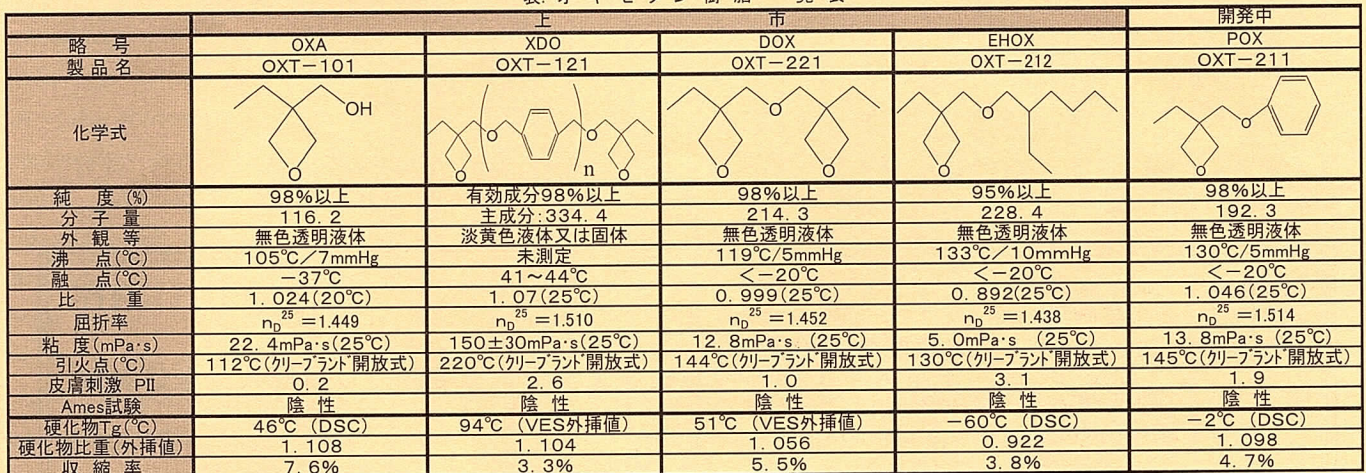 上 市 開発中
略 号 OXA XDO DOX EHOX POX
製品名 OXT-101 OXT-121 OXT-221 OXT-212 OXT-211
化学式 OH O O O n O O O O O O O O
純 度 (%) 98%以上 有効成分98%以上 98%以上 95%以上 98%以上
分 子 量 116. 2 主成分:334. 4 214. 3 228. 4 192. 3
外 観 等 無色透明液体 淡黄色液体又は固体 無色透明液体 無色透明液体 無色透明液体
沸 点(℃) 105℃/7mmHg 未測定 119℃/5mmHg 133℃/10mmHg 130℃/5mmHg
融 点(℃) -37℃ 41~44℃ <-20℃ <-20℃ <-20℃
比 重 1. 024(20℃) 1. 07(25℃) 0. 999(25℃) 0. 892(25℃) 1. 046(25℃)
屈折率 nD25 =1.449 nD25 =1.510 nD25 =1.452 nD25 =1.438 nD25 =1.514
粘 度(mPa·s) 22. 4mPa·s (25℃) 150±30mPa·s (25℃) 12. 8mPa·s (25℃) 5. 0mPa·s (25℃) 13. 8mPa·s (25℃)
引火点(℃) 112℃(クリーブランド開放式) 220℃(クリーブランド開放式) 144℃(クリーブランド開放式) 130℃(クリーブランド開放式) 145℃(クリーブランド開放式)
皮膚刺激 PII 0. 2 2. 6 1. 0 3. 1 1. 9
Ames試験 陰 性 陰 性 陰 性 陰 性 陰 性
硬化物Tg(℃) 46℃ (DSC) 94℃ (VES外挿値) 51℃ (VES外挿値) -60℃ (DSC) -2℃ (DSC)
硬化物比重(外挿値) 1. 108 1. 104 1. 056 0. 922 1. 098
収 縮 率 7. 6% 3. 3% 5. 5% 3. 8% 4. 7%